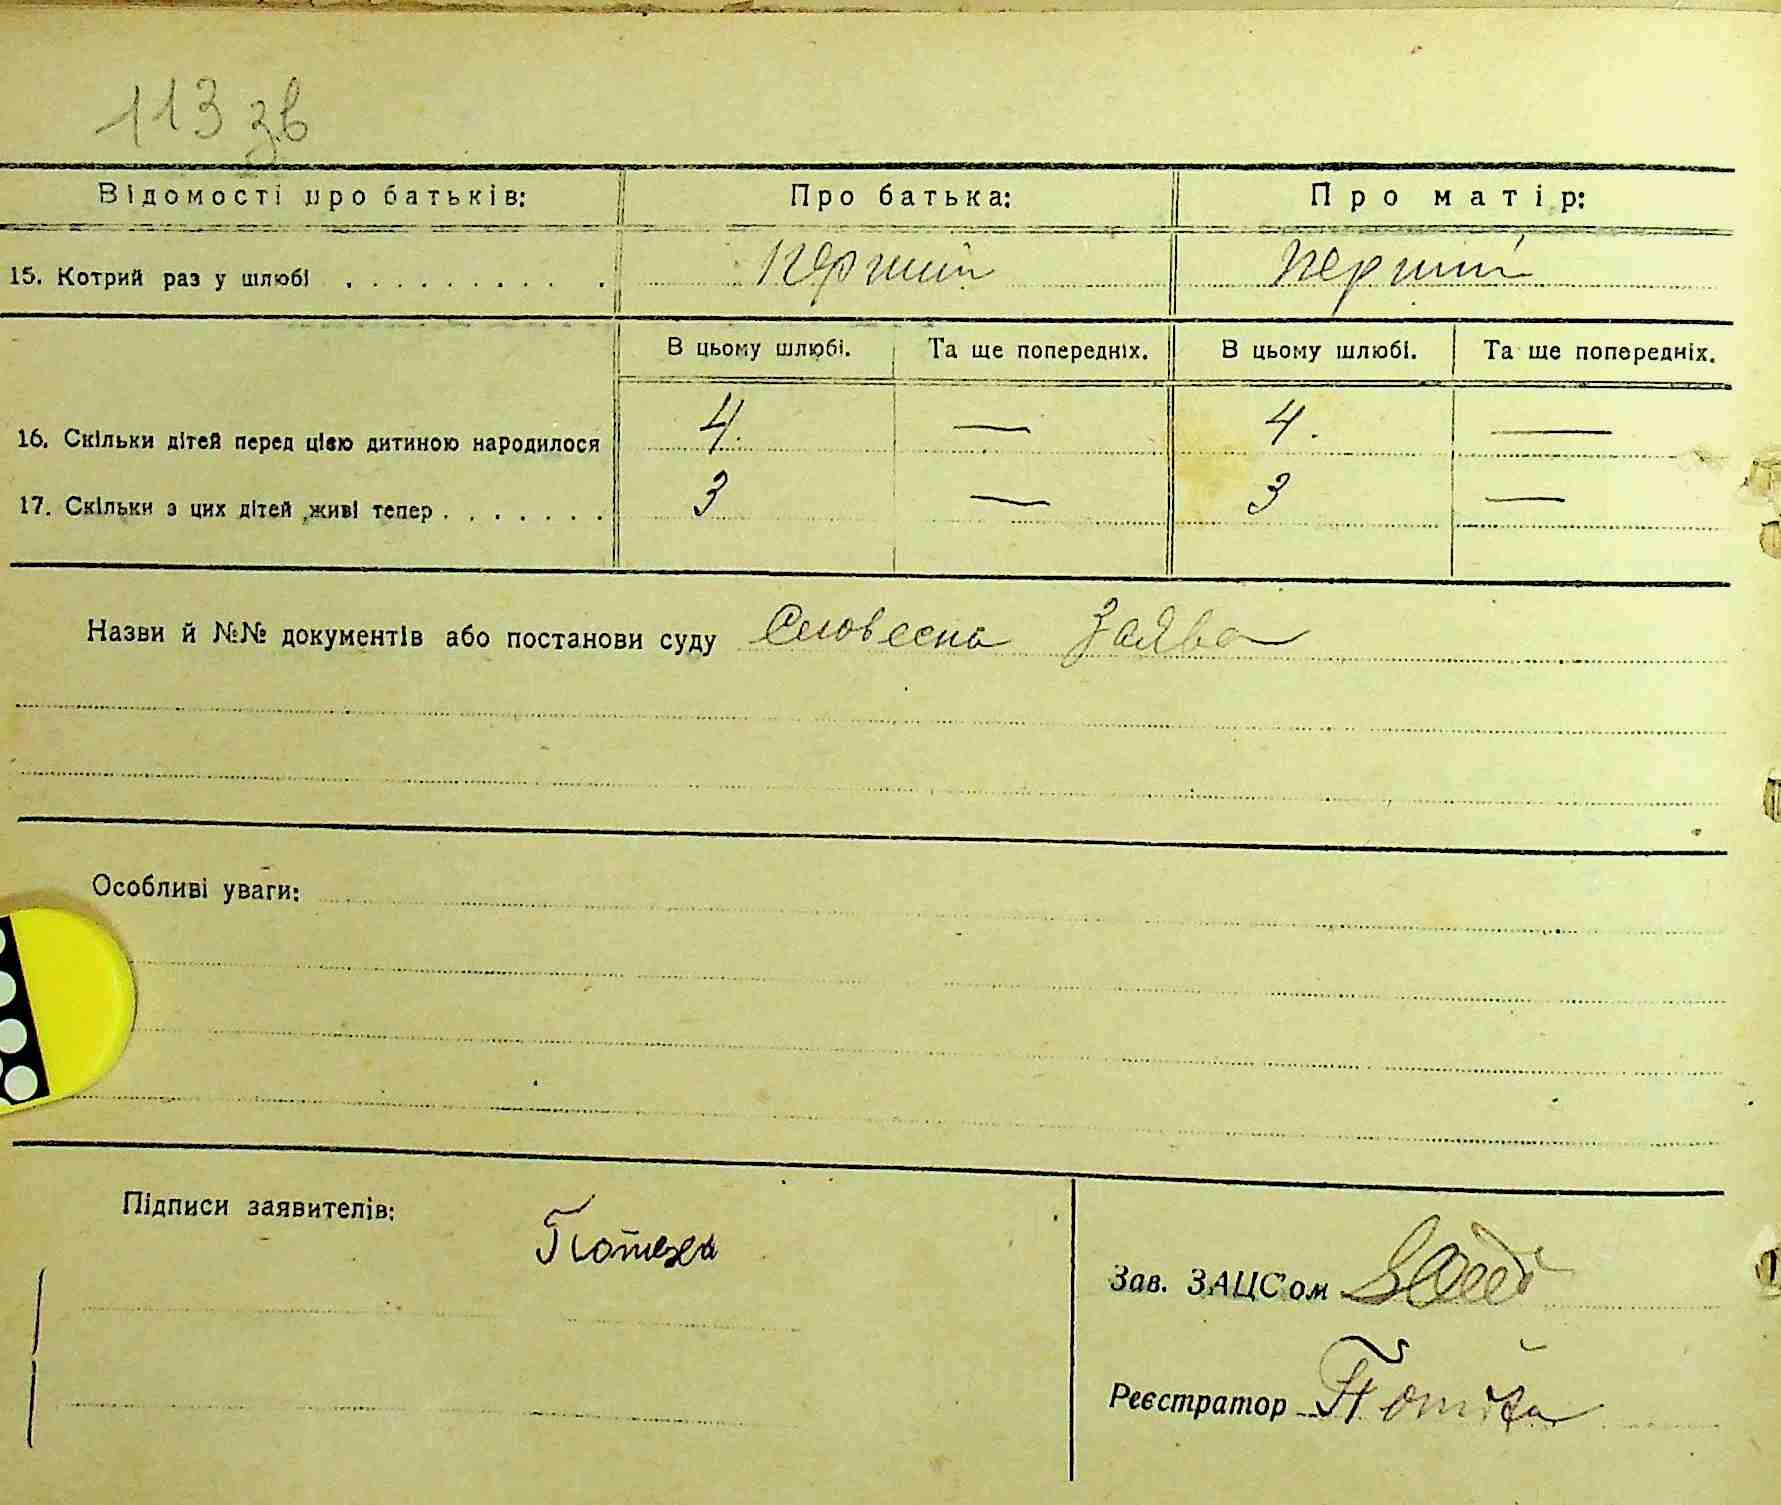 113 зв
Відомості про батьків: Про батька: Про матір:
15. Котрий раз у шлюбі . . . . . . . . . . перший перший
В цьому шлюбі. Та ще попередніх. В цьому шлюбі. Та ще попередніх.
16. Скільки дітей перед цією дитиною народилося 4. — 4. —
17. Скільки з цих дітей живі тепер . . . . . . . 3 — 3 —
Назви й №№ документів або постанови суду Словесна Заява
Особливі уваги:
Підписи заявителів:
Зав. ЗАЦС'ом
Реєстратор